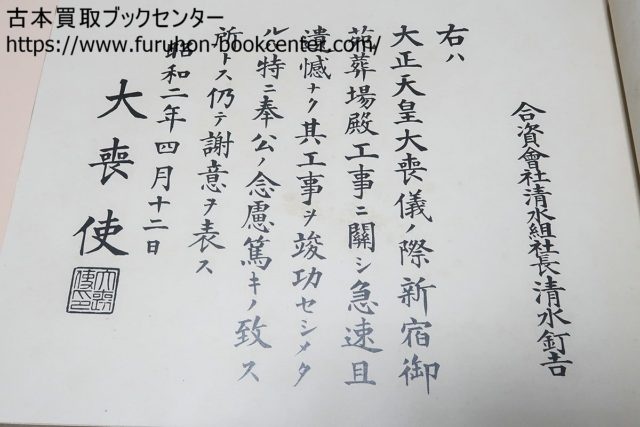 古本買取ブックセンター
https://www.furuhon-bookcenter.com/
合資會社清水組社長清水釘吉
右ハ
大正天皇大喪儀ノ際新宿御
苑葬場殿工事ニ關シ急速且
遺憾ナク其工事ヲ竣功セシメタ
ル特ニ奉公ノ念慮篤キノ致ス
所トス仍テ謝意ヲ表ス
昭和二年四月十二日
大喪使
大喪使印